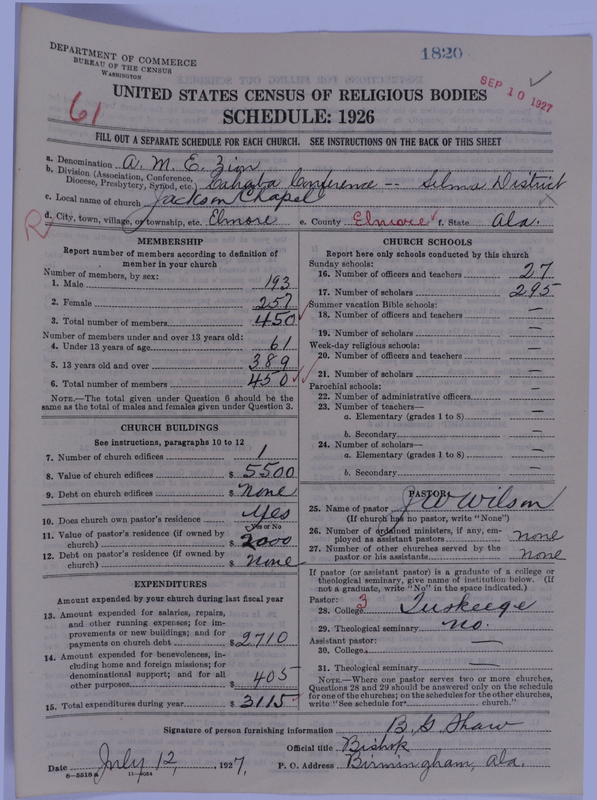 1820
DEPARTMENT OF COMMERCE
BUREAU OF THE CENSUS
WASHINGTON
SEP 10 1927
61
UNITED STATES CENSUS OF RELIGIOUS BODIES
SCHEDULE: 1926
FILL OUT A SEPARATE SCHEDULE FOR EACH CHURCH. SEE INSTRUCTIONS ON THE BACK OF THIS SHEET
a. Denomination A. M. E. Zion
b. Division (Association, Conference, Diocese, Presbytery, Synod, etc.) Cahaba Conference -- Selma District
c. Local name of church Jackson Chapel
R
d. City, town, village, or township, etc. Elmore e. County Elmore f. State Ala.
MEMBERSHIP
Report number of members according to definition of
member in your church
Number of members, by sex:
1. Male 193
2. Female 257
3. Total number of members 450
Number of members under and over 13 years old:
4. Under 13 years of age 61
5. 13 years old and over 389
6. Total number of members 450
NOTE.—The total given under Question 6 should be the
same as the total of males and females given under Question 3.
CHURCH BUILDINGS
See instructions, paragraphs 10 to 12
7. Number of church edifices 1
8. Value of church edifices $ 5500
9. Debt on church edifices $ None
10. Does church own pastor's residence Yes
Yes or No
11. Value of pastor's residence (if owned by
church) $ 2000
12. Debt on pastor's residence (if owned by
church) $ None
EXPENDITURES
Amount expended by your church during last fiscal year
13. Amount expended for salaries, repairs,
and other running expenses; for im-
provements or new buildings; and for
payments on church debt $ 2710
14. Amount expended for benevolences, in-
cluding home and foreign missions; for
denominational support; and for all
other purposes $ 405
15. Total expenditures during year $ 3115
CHURCH SCHOOLS
Report here only schools conducted by this church
Sunday schools:
16. Number of officers and teachers 27
17. Number of scholars 295
Summer vacation Bible schools:
18. Number of officers and teachers —
19. Number of scholars —
Week-day religious schools:
20. Number of officers and teachers —
21. Number of scholars —
Parochial schools:
22. Number of administrative officers —
23. Number of teachers—
a. Elementary (grades 1 to 8) —
b. Secondary —
24. Number of scholars—
a. Elementary (grades 1 to 8) —
b. Secondary —
PASTOR
25. Name of pastor J W Wilson
(If church has no pastor, write "None")
26. Number of ordained ministers, if any, em-
ployed as assistant pastors none
27. Number of other churches served by the
pastor or his assistants none
If pastor (or assistant pastor) is a graduate of a college or
theological seminary, give name of institution below. (If
not a graduate, write "No" in the space indicated.)
Pastor: 3
28. College Tuskeege
29. Theological seminary no.
Assistant pastor:
30. College —
31. Theological seminary —
NOTE.—Where one pastor serves two or more churches,
Questions 28 and 29 should be answered only on the schedule
for one of the churches; on the schedules for the other churches,
write "See schedule for church."
Signature of person furnishing information B. G. Shaw
Official title Bishop
Date July 12, 1927. P. O. Address Birmingham, Ala.
8-5518a 11-9054